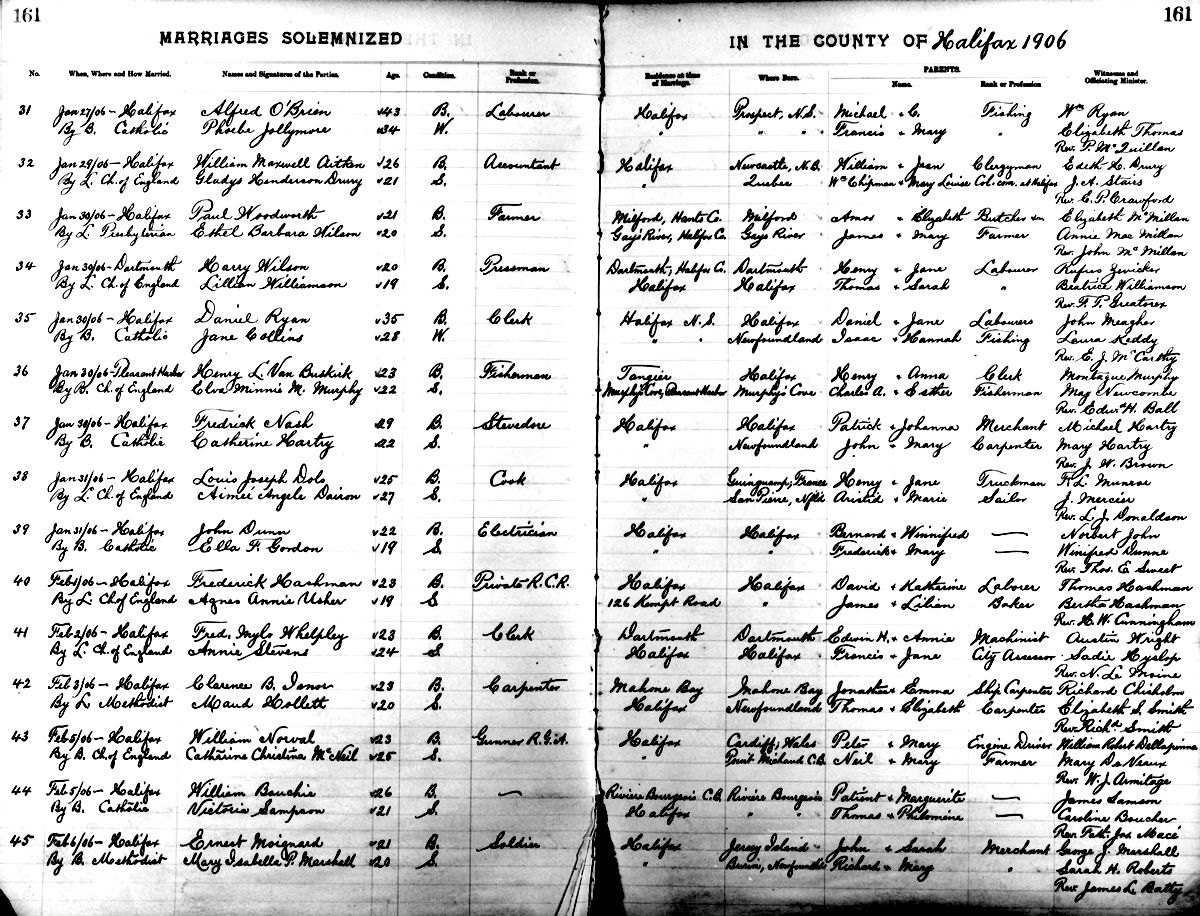 161 161
MARRIAGES SOLEMNIZED IN THE COUNTY OF Halifax 1906
PARENTS.
No. When, Where and How Married. Names and Signatures of the Parties. Age. Condition. Rank or Profession. Residence at time of Marriage. Where Born. Name. Rank or Profession Witnesses and Officiating Minister.
31 Jan 27/06 - Halifax Alfred O'Brien 43 B. Labourer Halifax Prospect, N.S. Michael & C. Fishing Wm Ryan
By B. Catholic Phoebe Jollymore 34 W. " " " Francis & Mary " Elizabeth Thomas
Rev. P. McQuillan
32 Jan 29/06 - Halifax William Maxwell Aitken 26 B. Accountant Halifax Newcastle, N.B. William & Jean Clergyman Edith H. Drury
By L. Ch. of England Gladys Henderson Drury 21 S. " Quebec Wm Chipman & Mary Louise Col. com. at Halifax J.A. Stairs
Rev. C.P. Crawford
33 Jan 30/06 - Halifax Paul Woodworth 21 B. Farmer Milford, Hants Co. Milford Amos & Elizabeth Butcher Elizabeth McMillan
By L. Presbyterian Ethel Barbara Wilson 20 S. Gays River, Halifax Co. Gays River James & Mary Farmer Annie Mae Millan
Rev. John McMillan
34 Jan 30/06 - Dartmouth Harry Wilson 20 B. Pressman Dartmouth, Halifax C. Dartmouth Henry & Jane Labourer Rufus Zwicker
By L. Ch. of England Lillian Williamson 19 S. Halifax Halifax Thomas & Sarah " Beatrice Williamson
Rev. F.T. Greatorex
35 Jan 30/06 - Halifax Daniel Ryan 35 B. Clerk Halifax N.S. Halifax Daniel & Jane Labourers John Meagher
By B. Catholic Jane Collins 28 W. " " Newfoundland Isaac & Hannah Fishing Laura Keddy
Rev. E.J. McCarthy
36 Jan 30/06 - Pleasant Harbor Henry L. Van Buskirk 23 B. Fisherman Tangier Halifax Henry & Anna Clerk Montague Murphy
By B. Ch. of England Elva Minnie M. Murphy 22 S. Murphy's Cove, Pleasant Harbor Murphy's Cove Charles A. & Esther Fisherman May Newcombe
Rev. Edw. H. Ball
37 Jan 30/06 - Halifax Fredrick Nash 29 B. Stevedore Halifax Halifax Patrick & Johanna Merchant Michael Hartry
By B. Catholic Catherine Hartry 22 S. " Newfoundland John & Mary Carpenter Mary Hartry
Rev. J.W. Brown
38 Jan 31/06 - Halifax Louis Joseph Dolo 25 B. Cook Halifax Guingamp, France Henry & Jane Truckman F.L. Munroe
By L. Ch of England Aimée Angele Dairon 27 S. " San Pierre, Nfld Aristid & Marie Sailor J. Mercier
Rev. L.J. Donaldson
39 Jan 31/06 - Halifax John Dunn 22 B. Electrician Halifax Halifax Bernard & Winnifred — Norbert John
By B. Catholic Ella F. Gordon 19 S " " Frederick & Mary — Winifred Dunne
Rev. Thos. E. Sweet
40 Feb 1/06 - Halifax Frederick Hashman 23 B. Private R.C.R. Halifax Halifax David & Katherine Laborer Thomas Hashman
By L. Ch of England Agnes Annie Usher 19 S 126 Kempt Road " James & Lilian Baker Bertha Hashman
Rev. H.W. Cunningham
41 Feb 2/06 - Halifax Fred. Mylo Whelpley 23 B. Clerk Dartmouth Dartmouth Edwin H. & Annie Machinist Austin Wright
By L. Ch. of England Annie Stevens 24 S Halifax Halifax Francis & Jane City Assessor Sadie Hyslop
Rev. N. Le Moine
42 Feb 3/06 - Halifax Clarence B. Isnor 23 B. Carpenter Mahone Bay Mahone Bay Jonathan & Emma Ship Carpenter Richard Chisholm
By L. Methodist Maud Hollett 20 S. Halifax Newfoundland Thomas & Elizabeth Carpenter Elizabeth S. Smith
Rev. Richd Smith
43 Feb 5/06 - Halifax William Norval 23 B. Gunner R.G.A. Halifax Cardiff, Wales Peter & Mary Engine Driver William Robert Dellapinna
By B. Ch. of England Catherine Christina McNeil 25 S. " Point Michaud C.B. Neil & Mary Farmer Mary DeVeaux
Rev. W.J. Armitage
44 Feb 5/06 - Halifax William Bouchie 26 B. — Riviere Bourgeois C.B. Riviere Bourgeois Patient & Marguerite — James Samson
By B. Catholic Victoria Sampson 21 S. Halifax " " Thomas & Philomine — Caroline Boucher
Rev. Fath. Jos. Macé
45 Feb 6/06 - Halifax Ernest Moignard 21 B. Soldier Halifax Jersey Island John & Sarah Merchant George J. Marshall
By B. Methodist Mary Isabella P. Marshall 20 S. " Burin, Newfoundld Richard & Mary " Sarah H. Roberts
Rev. James L. Batty